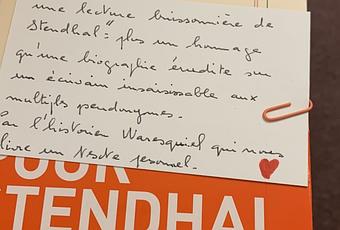 une lecture buissonnière de
Stendhal" plus un hommage
qu'une biographie érudite sur
un écrivain insaisissable aux
multiples pseudonymes.
Par l'historien Waresquiel qui nous
livre un texte personnel.
POUR
STENDHAL